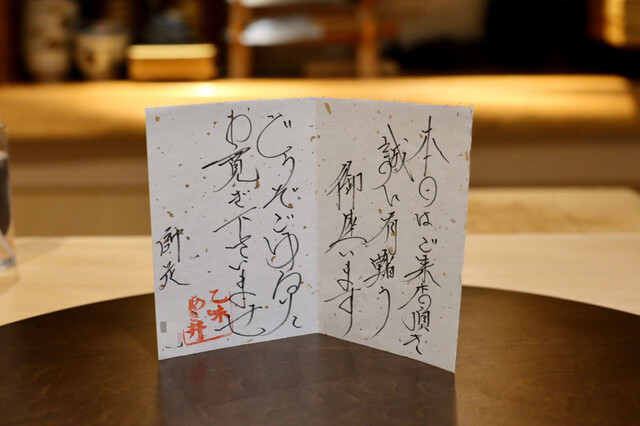 本日はご来店頂き
誠に有難う
御座います
どうぞごゆるりと
お寛ぎ下さいませ
師走
乙味